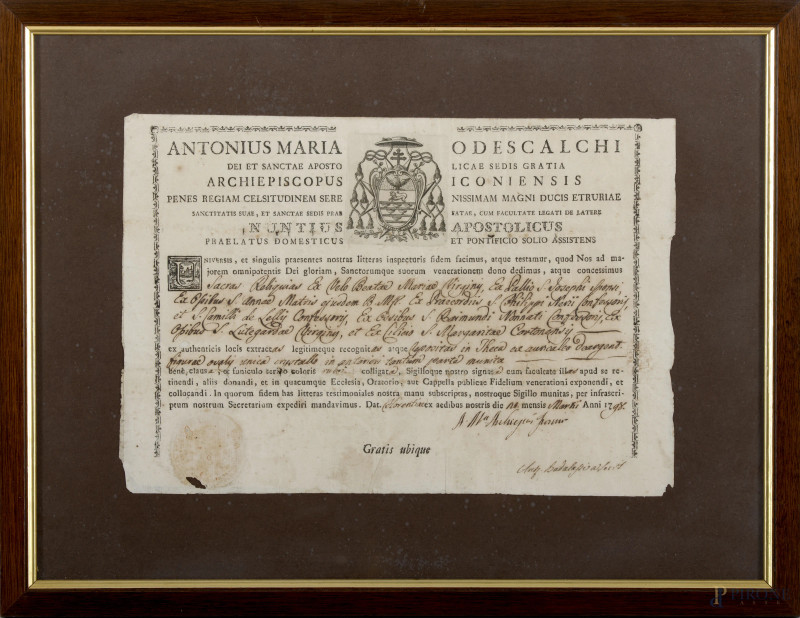 ANTONIUS MARIA ODESCALCHI
DEI ET SANCTAE APOSTO LICAE SEDIS GRATIA
ARCHIEPISCOPUS ICONIENSIS
PENES REGIAM CELSITUDINEM SERE NISSIMAM MAGNI DUCIS ETRURIAE
SANCTITATIS SUAE, ET SANCTAE SEDIS PRAE LATAE, CUM FACULTATE LEGATI DE LATERE
NUNTIUS APOSTOLICUS
PRAELATUS DOMESTICUS ET PONTIFICIO SOLIO ASSISTENS
UNIVERSIS, et singulis praesentes nostras litteras inspecturis fidem facimus, atque testamur, quod Nos ad ma
jorem omnipotentis Dei gloriam, Sanctorumque suorum venerationem dono dedimus, atque concessimus
Sacras Reliquias Ex Velo Beatae Mariae Virginis, Ex Pallio S. Josephi Sponsi,
Ex Ossibus S. Annae Matris ejusdem B.M.V. Ex Praecordiis S. Philippi Nerii Confessoris,
et S. Camilli de Lellis Confessoris, Ex Ossibus S. Raimundi Nonnati Confessoris, Ex
Ossibus S. Lutegardae Virginis, et Ex Cilicio S. Margaritae Cortonensis
ex authenticis locis extractas legitimeque recognitas atque repositas in Theca ex
figurae ovalis unica crystallo in anteriori tantum parte munita
bene clausa et funiculo serico coloris rubri colligata, Sigilloque nostro signata cum facultate illas apud se re-
tinendi, aliis donandi, et in quacumque Ecclesia, Oratorio, aut Cappella publicae Fidelium venerationi exponendi, et
collocandi. In quorum fidem has litteras testimoniales nostra manu subscriptas, nostroque Sigillo munitas, per infrascri-
ptum nostrum Secretarium expediri mandavimus. Dat. Florentiae ex aedibus nostris die mensis Martii Anni 179
Gratis ubique